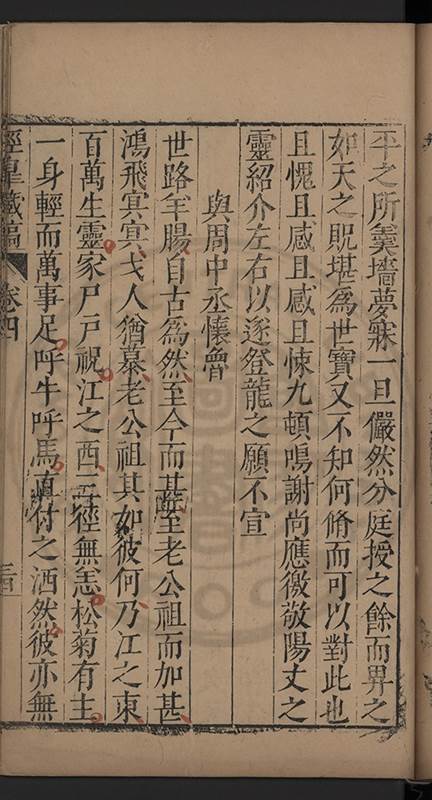 平之所羹墻夢寐一旦儼然分庭授之餘而畀之
如天之貺堪爲世寳又不知何脩而可以對此也
且愧且感且感且悚九頓鳴謝尚應徼敬陽丈之
靈紹介左右以遂登龍之願不宣
與周中丞懷魯
世路羊腸自古爲然至今而甚至老公祖而加甚
鴻飛㝠㝠弋人猶慕老公祖其如彼何乃江之東
百萬生靈家尸戸祝江之西三徑無恙松菊有主
一身輕而萬事足呼牛呼馬直付之洒然彼亦無
涇臯藏稿
卷四